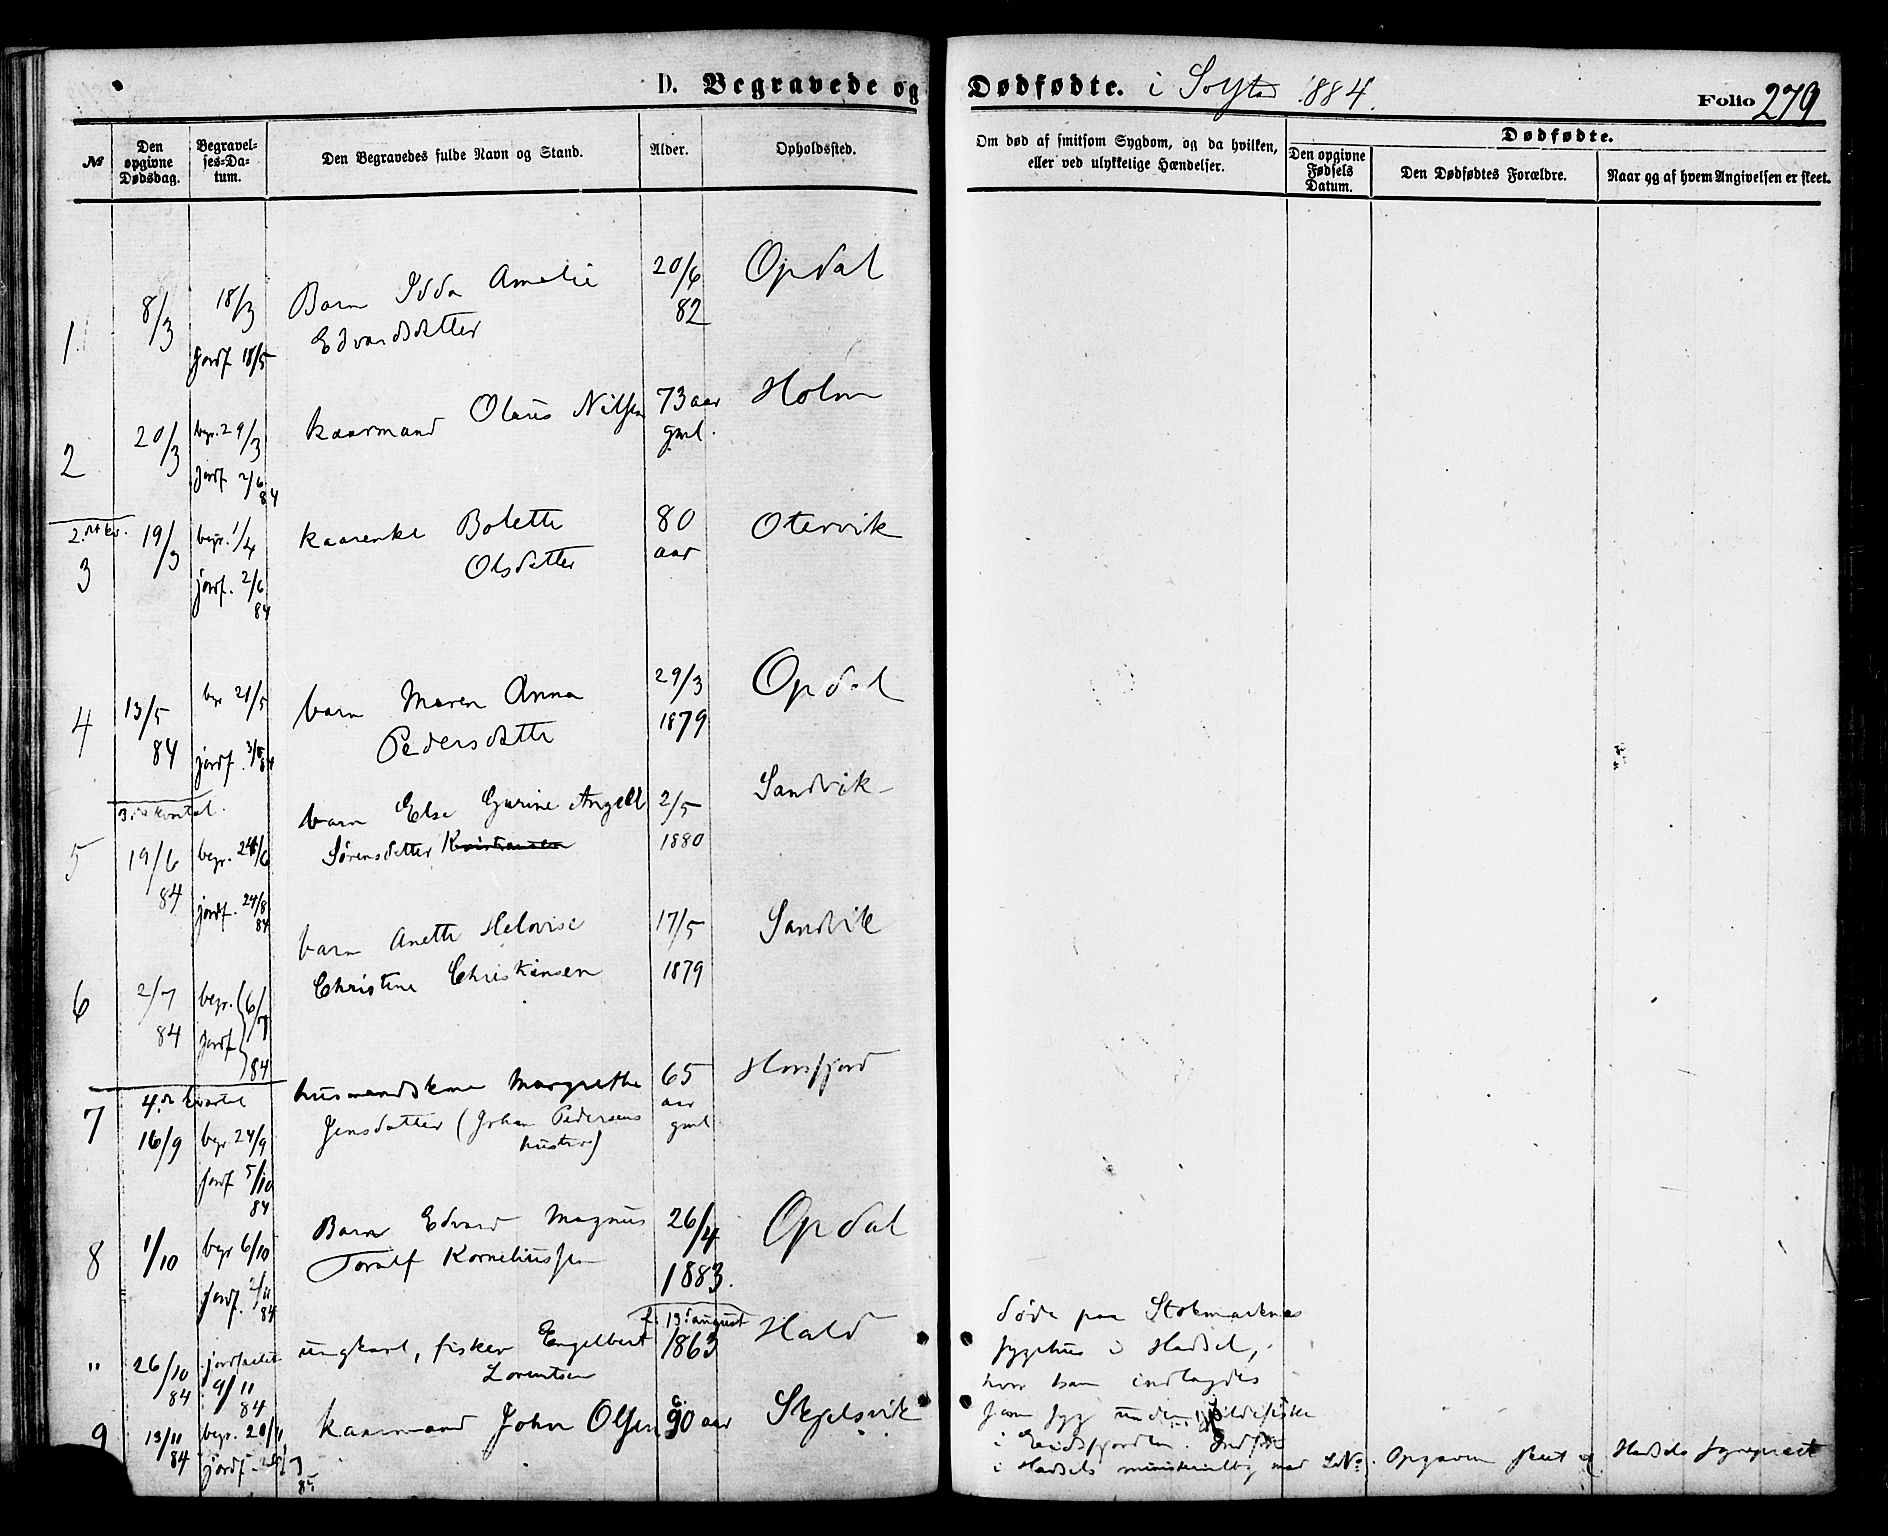 D. Begravede og Dødfødte. i Solstad 1884.
Folio 279
№
Den opgivne Dødsdag.
Begravelses-Datum.
Den Begravedes fulde Navn og Stand.
Alder.
Opholdssted.
Om død af smitsom Sygdom, og da hvilken,
eller ved ulykkelige Hændelser.
Dødfødte.
Den opgivne Fødsels Datum.
Den Dødfødtes Forældre.
Naar og af hvem Angivelsen er skeet.
1 8/3 18/3 Barn Idda Amalie 20/6 Opdal
jordf 18/5 Edvardsdatter 82
2 20/3 begr. 29/3 kaarmand Olaus Nilssen 73 aar Holm
jordf 2/6 84 gml.
2. kv.
3 19/3 begr. 1/4 kaarenke Bolette 80 Otervik
jordf. 2/6 84 Olsdatter aar
4 13/5 begr 21/5 barn Maren Anna 29/3 Opdal
84 jordf. Pedersdatter 1879
3. kvartal.
5 19/6 begr. 24/6 barn Else Gurine Angell 2/5 Sandvik
84 jordf. 24/8 84 Sørensdatter 1880
6 2/7 begr. 6/7 barn Anette Helovise 17/5 Sandvik
84 jordf 84 Christine Christiansen 1879
4. kvartal
7 16/9 begr 24/9 husmandskone Margrethe 65 Horsfjord
jordf 5/10 84 Jensdatter (Johan Pedersens aar
hustro) gml
8 1/10 begr 6/10 Barn Edvard Magnus 26/4 Opdal
jordf. 2/11 84 Toralf Korneliussen 1883.
" 26/10 84 jordfæstet 9/11 84 ungkarl, fisker Engelbert f. 19. august 1863 Hald
Lorentsen
døde paa Stokmarknes
sygehus i Hadsel,
hvor han indlagdes
som syg under sildefiske
i Eidsfjorden. Indført
i Hadsels ministerialbog med L№. Opgaven skeet af Hadsels sogneprest
9 13/11 84 begr. 20/11 kaarmand John Olsen 90 aar Skjelsvik
jordf. 85